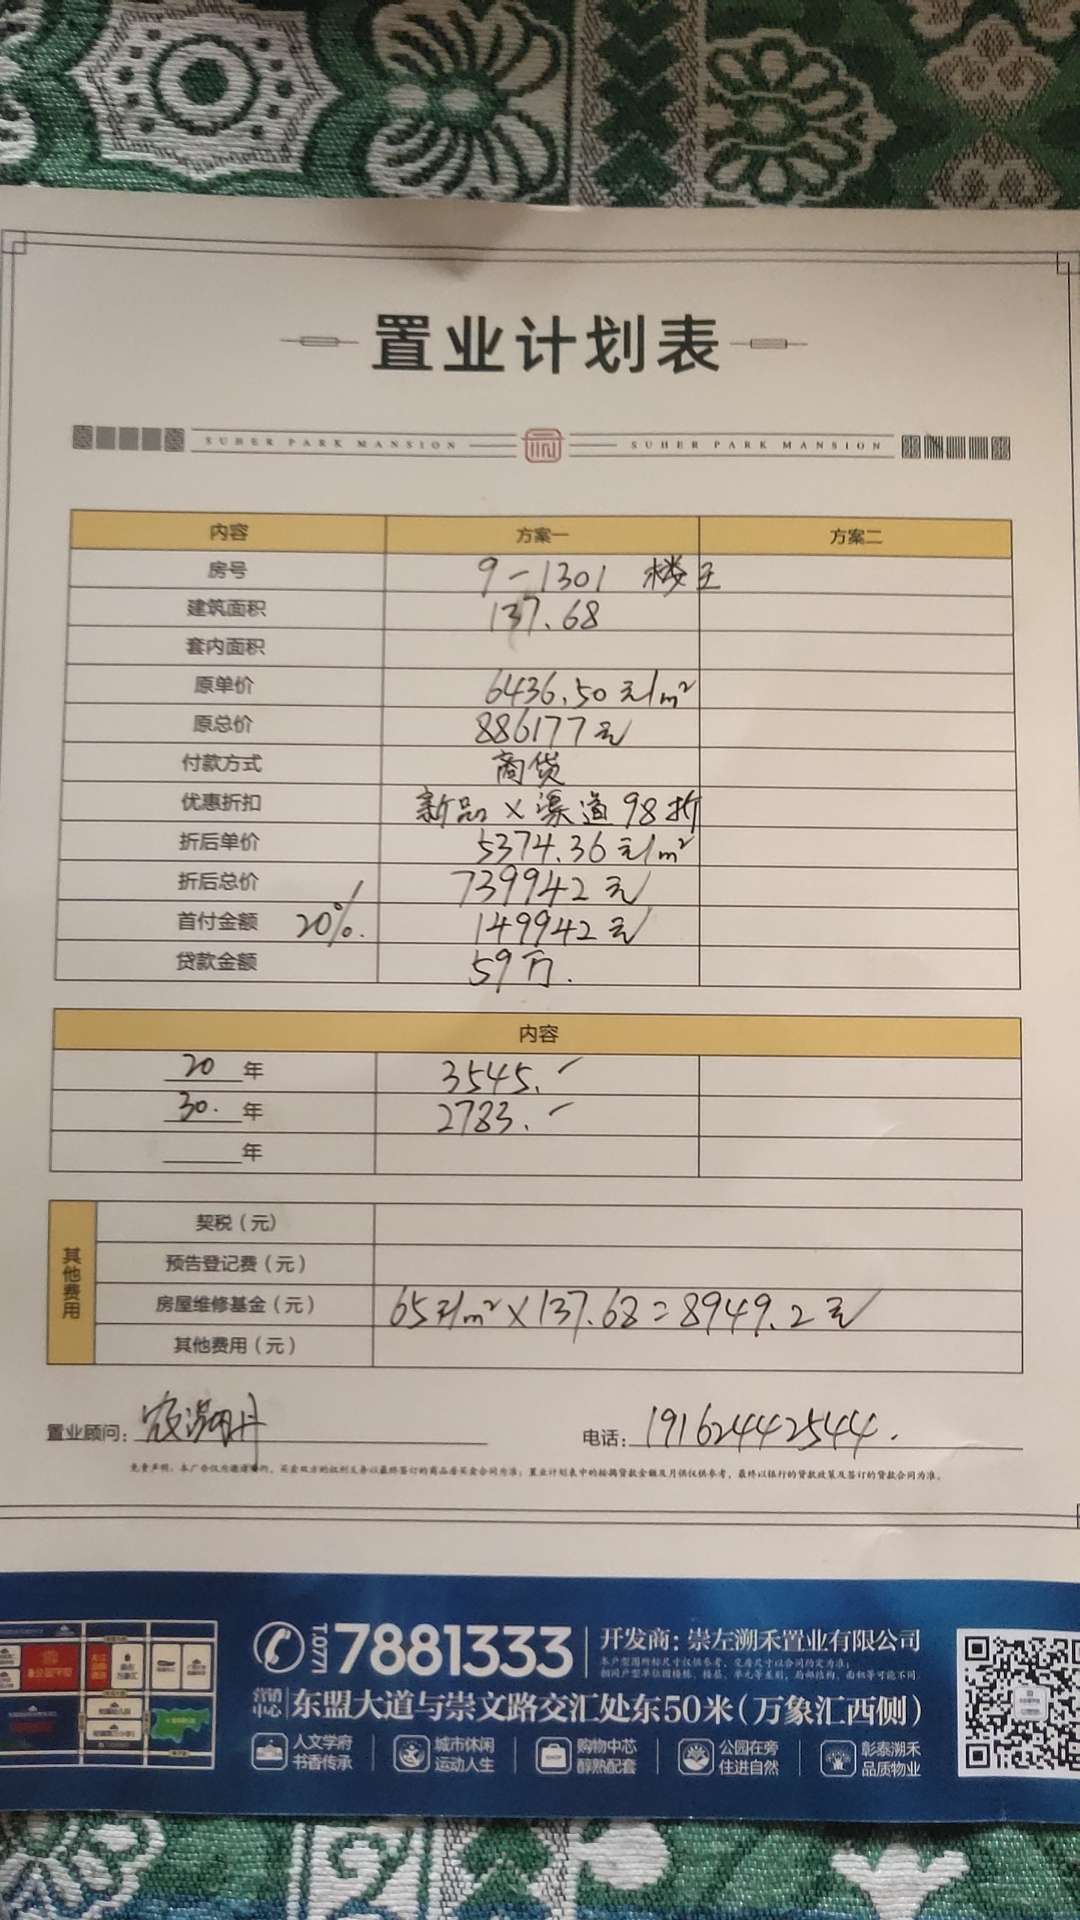 置业计划表
SUHER PARK MANSION SUHER PARK MANSION
内容 方案一 方案二
房号 9-1301 楼王
建筑面积 137.68
套内面积
原单价 6436.50元/m²
原总价 886177元
付款方式 商贷
优惠折扣 新品×渠道98折
折后单价 5374.36元/m²
折后总价 739942元
首付金额 20%. 149942元
贷款金额 59万.
内容
20年 3545.-
30.年 2783.-
年
其他费用
契税(元)
预告登记费(元)
房屋维修基金(元) 65元/m²×137.68=8949.2元
其他费用(元)
置业顾问: 电话: 19162442544.
免责声明: 本广告仅为邀请要约, 买卖双方的权利义务以最终签订的商品房买卖合同为准; 置业计划表中的按揭贷款金额及月供仅供参考, 最终以银行的贷款政策及签订的贷款合同为准。
T.0771 7881333 开发商: 崇左溯禾置业有限公司
营销中心 东盟大道与崇文路交汇处东50米(万象汇西侧)
人文学府 城市休闲 购物中芯 公园在旁 彰泰溯禾
书香传承 运动人生 醇熟配套 住进自然 品质物业